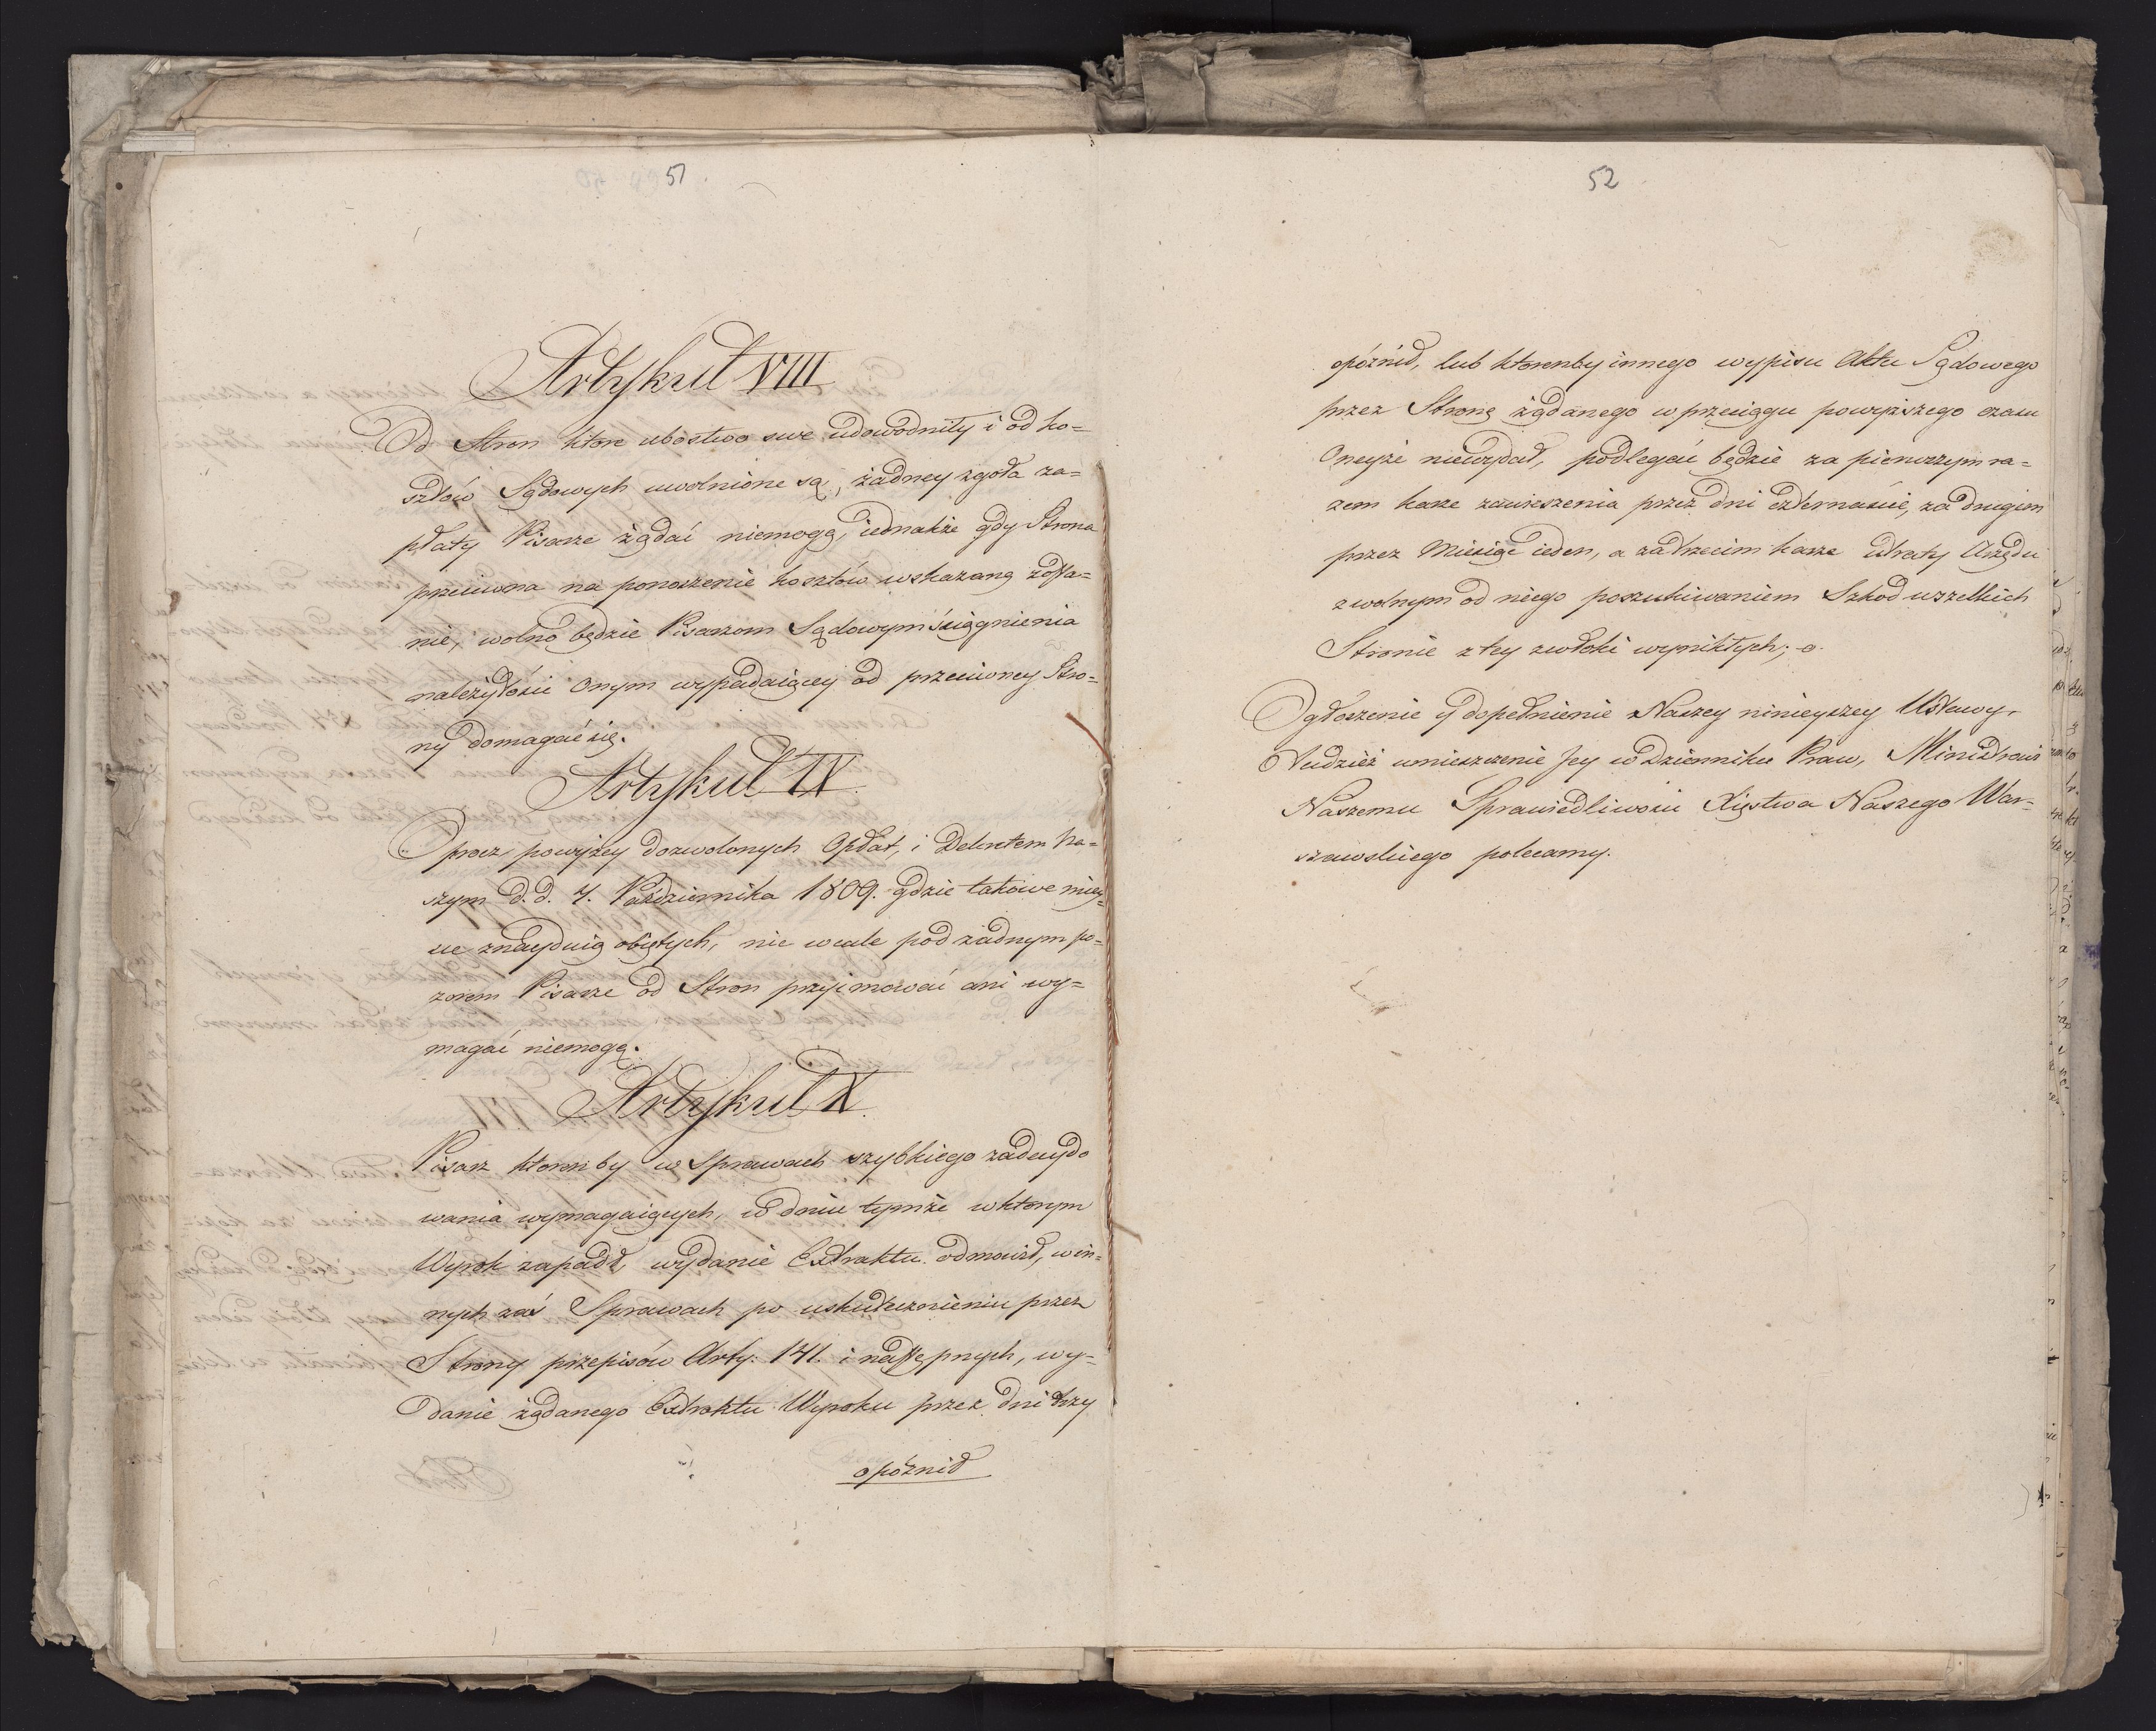 51.
Artykuł VIII
Od Stron ktore ubostwo swe udowodniły i od ko=
sztów Sądowych uwolnione są, żadney zgoła za=
płaty Pisarze żądać niemogą, iednakże gdy Strona
przeciwna na ponoszenie kosztów wskazaną zosta=
nie, wolno będzie Pisarzom Sądowym ściągnienia
należytości onym wypadaiącey od przeciwney Stro=
ny domagać się.
Artykuł IX.
Oprocz powyżey dozwolonych Opłat, i Dekretem Na=
szym d. d. 7. Października 1809. gdzie takowe miey=
sce znayduią obiętych, nic wcale pod żadnym po=
zorem Pisarze od Stron przyimować ani wy=
magać niemogą.
Artykuł X.
Pisarz ktoren by w Sprawach szybkiego zadecydo
wania wymagaiących, w dniu tymże w ktorym
Wyrok zapadł, wydanie Extraktu odmowił, w in=
nych zaś Sprawach po uskutecznieniu przez
Strony przepisów Arty: 141. i następnych, wy=
danie żądanego Extraktu Wyroku przez dni trzy
opóźnił
52
opóźnił, lub ktorenby innego wypisu Aktu Sądowego
przez Stronę żądanego w przeciągu powyższego czasu
Oneyże niewydał, podlegać będzie za pierwszym ra=
zem karze zawieszenia przez dni czternaście, za drugim
przez Miesiąc ieden, a za trzecim karze utraty Urzędu
z wolnym od niego poszukiwaniem Szkod wszelkich
Stronie z tey zwłoki wynikłych;
Ogłoszenie y dopełnienie Naszey ninieyszey Ustawy,
Tudzież umieszczenie Jey w Dzienniku Praw, Ministrowi
Naszemu Sprawiedliwości Xięstwa Naszego War=
szawskiego polecamy.